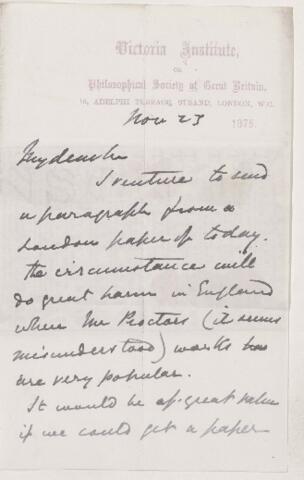 Victoria Institute,
OR
Philosophical Society of Great Britain,
10, ADELPHI TERRACE, STRAND, LONDON, W.C.
Nov 23 1875.
My dear
I venture to send
a paragraph from a
London paper of today.
the circumstance will
do great harm in England
where Mr Proctors (it seems
misunderstood) works
are very popular.
It would be of great value
if we could get a paper